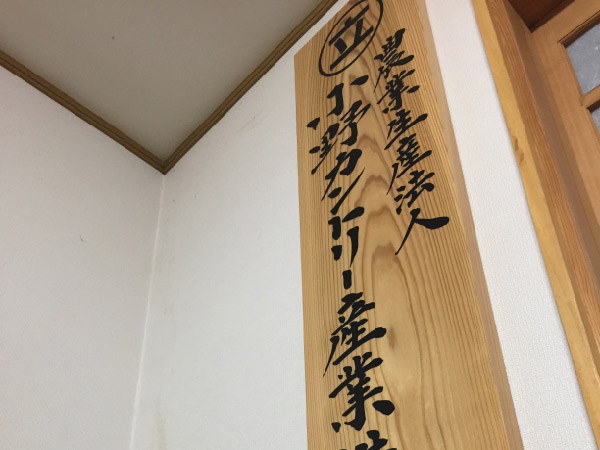 農業生産法人
立 小野カントリー産業